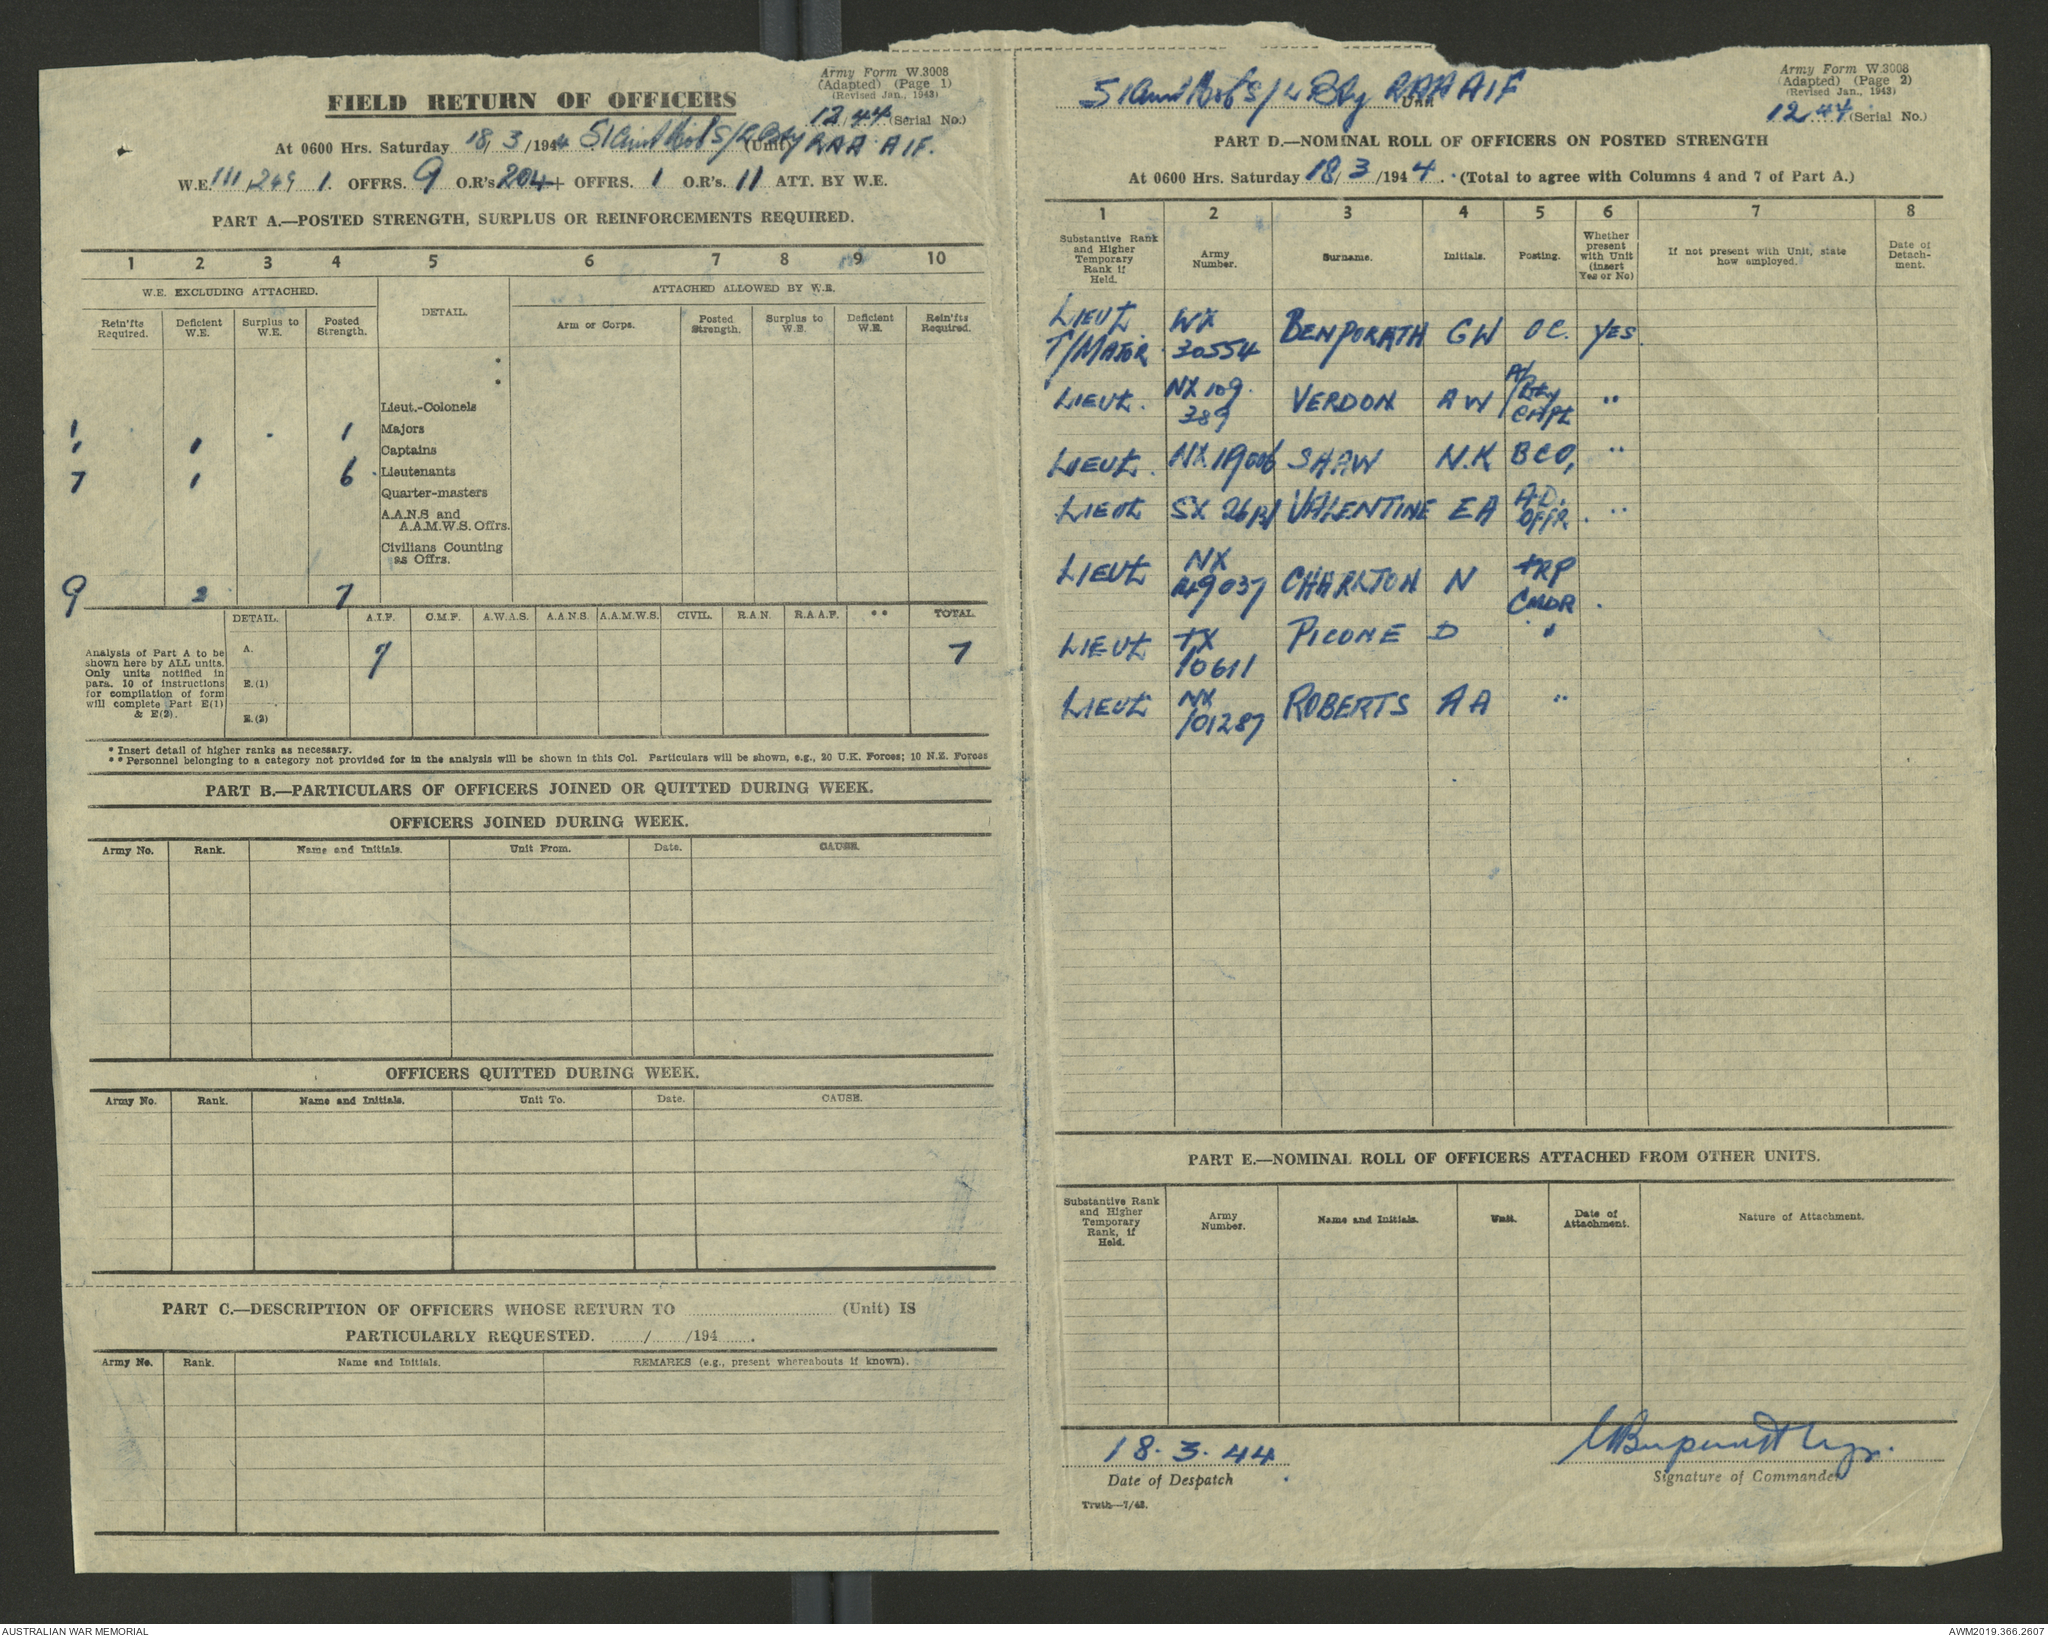 Army Form W.3008
(Adapted) (Page 1)
(Revised Jan., 1943)
FIELD RETURN OF OFFICERS
12/44 (Serial No.)
At 0600 Hrs. Saturday 18/3/1944 51 S/L Bty (Unit) RAA AIF.
W.E. 111 249 1. OFFRS. 9 O.R's 204+ OFFRS. 1 O.R's. 11 ATT. BY W.E.
PART A.—POSTED STRENGTH, SURPLUS OR REINFORCEMENTS REQUIRED.
1 2 3 4 5 6 7 8 9 10
W.E. EXCLUDING ATTACHED. DETAIL. ATTACHED ALLOWED BY W.E.
Rein'fts Required. Deficient W.E. Surplus to W.E. Posted Strength. Arm or Corps. Posted Strength. Surplus to W.E. Deficient W.E. Rein'fts Required.
*
*
Lieut.-Colonels
1 1 Majors
1 1 Captains
7 1 6 Lieutenants
Quarter-masters
A.A.N.S and
A.A.M.W.S. Offrs.
Civilians Counting
as Offrs.
9 2 7
DETAIL. A.I.F. C.M.F. A.W.A.S. A.A.N.S. A.A.M.W.S. CIVIL. R.A.N. R.A.A.F. ** TOTAL.
Analysis of Part A to be
shown here by ALL units.
Only units notified in
para. 10 of instructions
for compilation of form
will complete Part E(1)
& E(2).
A. 7 7
E.(1)
E.(2)
* Insert detail of higher ranks as necessary.
** Personnel belonging to a category not provided for in the analysis will be shown in this Col. Particulars will be shown, e.g., 20 U.K. Forces; 10 N.Z. Forces
PART B.—PARTICULARS OF OFFICERS JOINED OR QUITTED DURING WEEK.
OFFICERS JOINED DURING WEEK.
Army No. Rank. Name and Initials. Unit From. Date. CAUSE.
OFFICERS QUITTED DURING WEEK.
Army No. Rank. Name and Initials. Unit To. Date. CAUSE.
PART C.—DESCRIPTION OF OFFICERS WHOSE RETURN TO (Unit) IS
PARTICULARLY REQUESTED. / /194 .
Army No. Rank. Name and Initials. REMARKS (e.g., present whereabouts if known).
Army Form W.3008
(Adapted) (Page 2)
(Revised Jan., 1943)
51 S/L Bty RAA AIF
12/44 (Serial No.)
PART D.—NOMINAL ROLL OF OFFICERS ON POSTED STRENGTH
At 0600 Hrs. Saturday 18/3/1944. (Total to agree with Columns 4 and 7 of Part A.)
1 2 3 4 5 6 7 8
Substantive Rank and Higher Temporary Rank if Held. Army Number. Surname. Initials. Posting. Whether present with Unit (insert Yes or No) If not present with Unit, state how employed. Date of Detach-ment.
LIEUT. T/MAJOR WX 30554 BENPORATH GW OC. YES.
LIEUT. NX 109389 VERDON AW A/Bty CAPT "
LIEUT. NX 19006 SHAW N.K BCO, "
LIEUT SX VALENTINE EA A.D. OFFR. "
LIEUT NX CHARLTON N TRP CMDR.
LIEUT TX 10611 PICONE D "
LIEUT NX 101287 ROBERTS AA "
PART E.—NOMINAL ROLL OF OFFICERS ATTACHED FROM OTHER UNITS.
Substantive Rank and Higher Temporary Rank, if Held. Army Number. Name and Initials. Unit. Date of Attachment. Nature of Attachment.
18.3.44
Date of Despatch
Signature of Commander
Truth—7/43.
AUSTRALIAN WAR MEMORIAL
AWM2019.366.2607